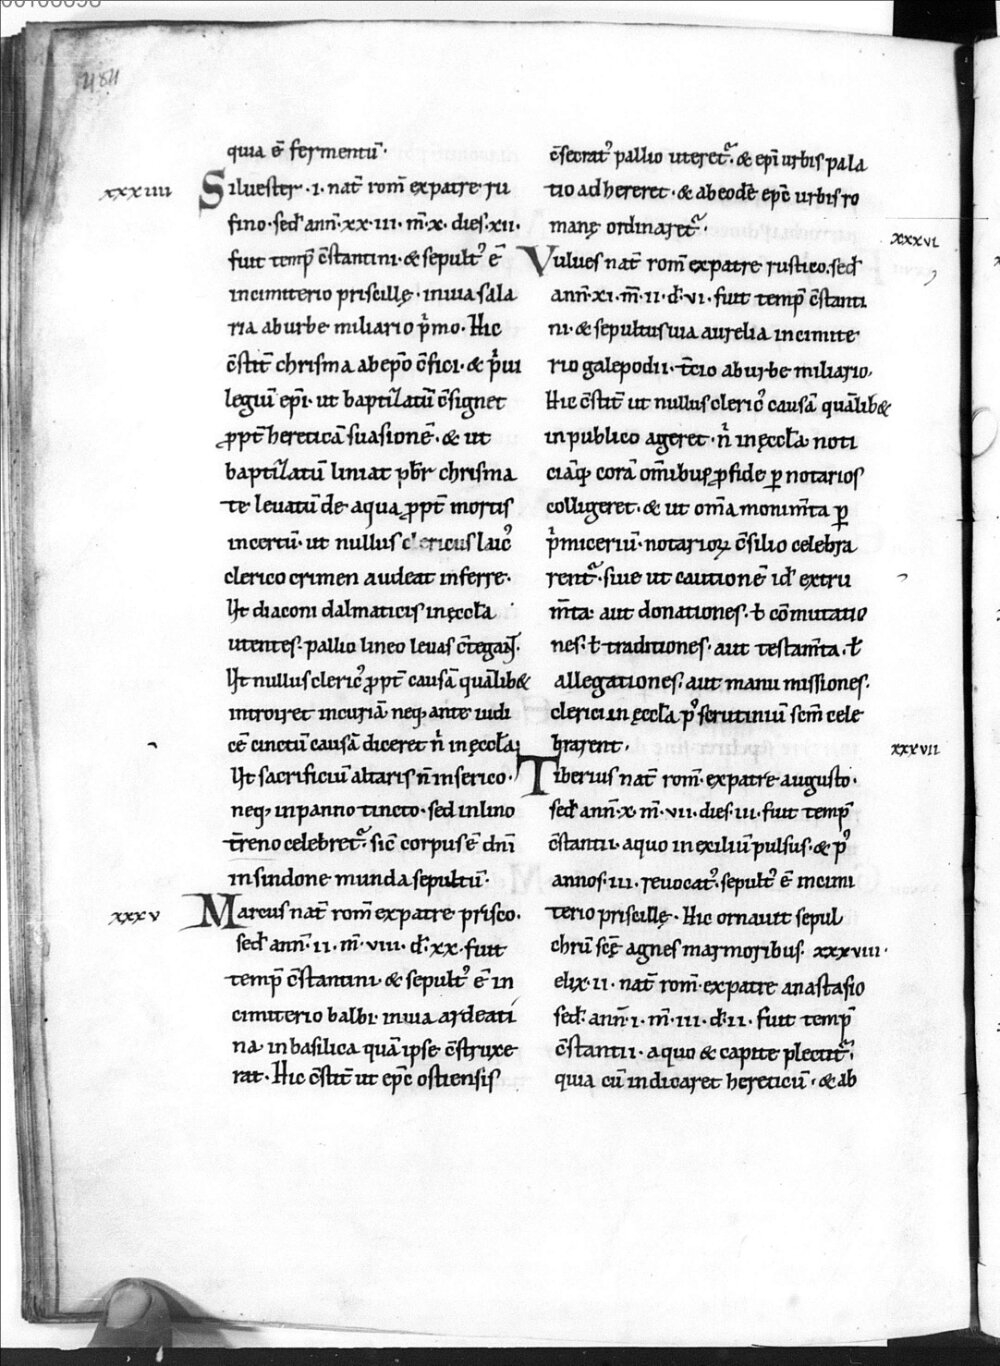 484
quia ē fermentū·
xxxiiii
Siluester·i·nat̄ rom̄ expatre ru
fino·sed̄ ann̄·xx·iii·m̄·x·dies·xii·
fuit temp̄ c̄stantini·& sepult᾽ ē
incimiterio priscillę·inuia sala
ria aburbe miliario p̄mo·Hic
c̄stit̄ chrisma abep̄o c̄fici·& p̄ui
legiū ep̄i·ut baptizatū c̄signet
ꝓpt̄ hereticā suasionē·& ut
baptizatū liniat pb̄r chrisma
te leuatū de aqua ꝓpt̄ mortis
incertū·ut nullus clericus laic᾽
clerico crimen audeat inferre·
Ut diaconi dalmaticis inęccl̄a
utentes·pallio lineo leuas c̄tegant̄·
Ut nullus cleric᾽ ꝓpt̄ causā qualib&
introiret incuriā neq; ante iudi
cē cinctū causā diceret n̄ inęccl̄a;
Ut sacrificiū altaris n̄ inserico·
neq; inpanno tincto·sed inlino
tr̄eno celebret᷑·sic̄ corpus ē dn̄i
insindone munda sepultū·
xxxv
Marcus nat̄ rom̄ expatre prisco·
sed̄ ann̄·ii·m̄·viii·d̄·xx·fuit
temp̄ c̄stantini·& sepult᾽ ē in
cimiterio balbi·inuia ardeati
na·inbasilica quā ipse c̄struxe
rat·Hic c̄stit̄ ut ep̄c ostiensis
c̄secrat᾽ pallio uteret᷑·& ep̄i urbis pala
tio adhereret·& abeodē ep̄c urbis ro
manę ordinaret᷑·
xxxvi
Vulues nat̄ rom̄ expatre rustico·sed̄
ann̄·xi·m̄·ii·d̄·vi·fuit temp̄ c̄stanti
ni·& sepultus uia aurelia incimite
rio galepodii·t̄cio aburbe miliario·
Hic c̄stit̄ ut nullus cleric᾽ causā qualib&
inpublico ageret·n̄ inęccl̄a noti
ciāq; corā om̄ibus ꝓfide ꝑ notarios
colligeret·& ut om̄a monim̄ta ꝑ
p̄miceriū·notarioꝝ c̄silio celebra
rent᷑·siue ut cautionē id̄ extru
m̄ta·aut donationes·ł cōmutatio
nes·ł traditiones·aut testam̄ta·ł
allegationes·aut manu missiones·
clerici in ęccl̄a p᾽ scrutiniū scm̄ cele
brarent·
xxxvii
Tiberius nat̄ rom̄·expatre augusto·
sed̄ ann̄·x·m̄·vii·dies·iii·fuit temp̄
c̄stantii·aquo inexiliū pulsus·& p᾽
annos·iii·reuocat᾽·sepult᾽ ē incimi
terio priscillę·Hic ornauit sepul
chrū scę̄ agnes marmoribus·xxxviii·
elix·ii·nat̄ rom̄·expatre anastasio
sed̄·ann̄·i·m̄·iii·d̄·ii·fuit temp̄
c̄stantii·aquo & capite plectit᷑·
quia cū indicaret hereticū·& ab